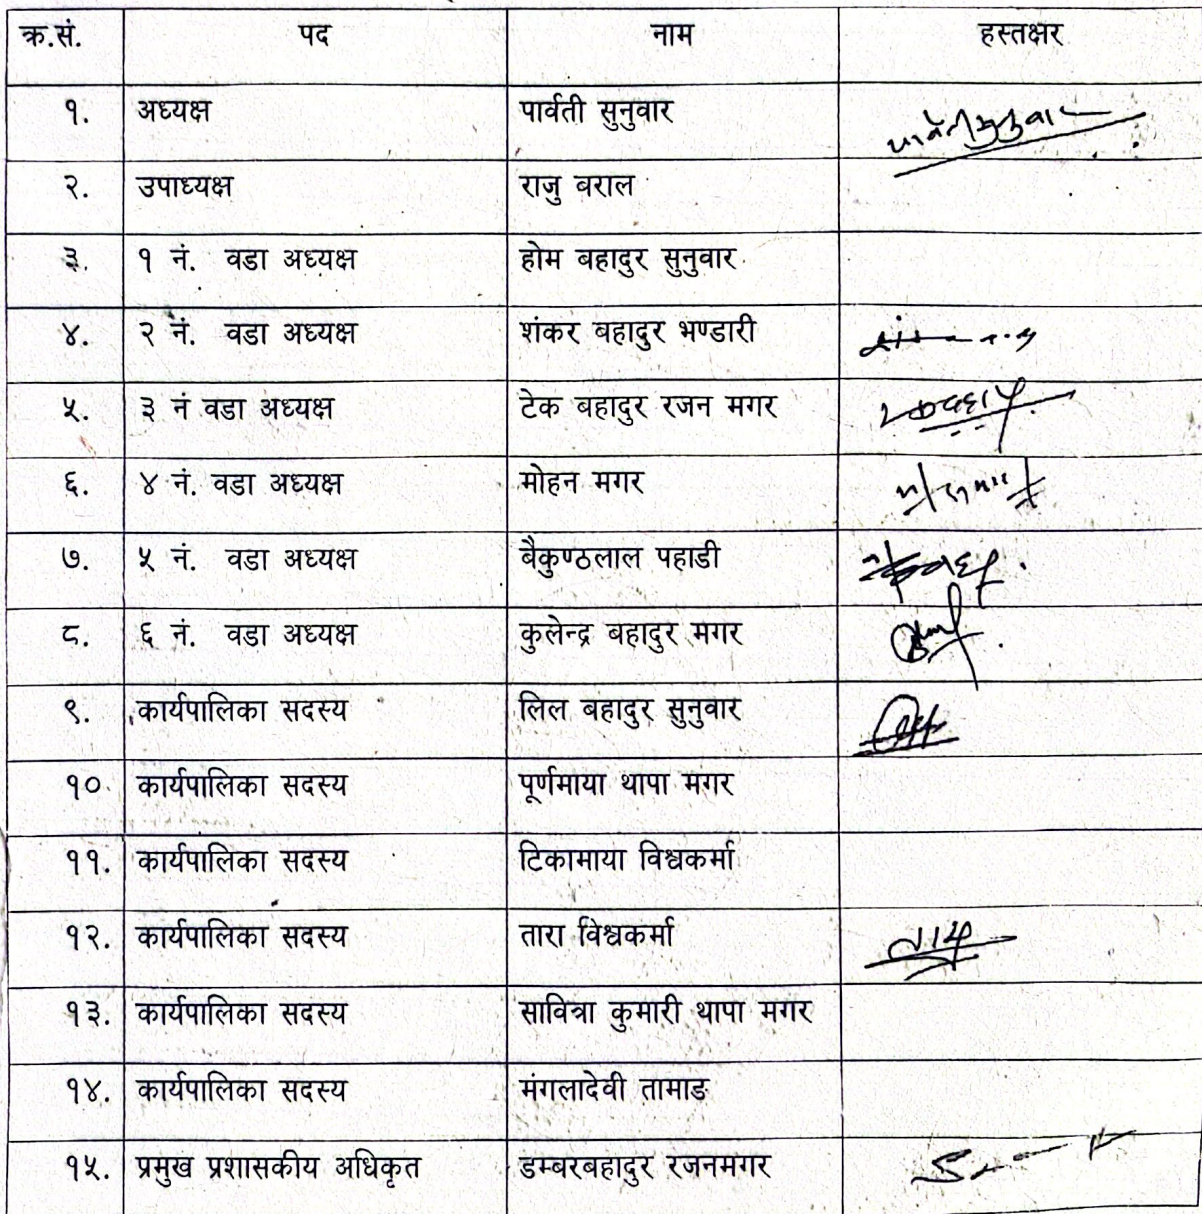 क्र.सं. पद नाम हस्तक्षर
१. अध्यक्ष पार्वती सुनुवार पार्वती सुनुवार
२. उपाध्यक्ष राजु बराल
३. १ नं. वडा अध्यक्ष होम बहादुर सुनुवार
४. २ नं. वडा अध्यक्ष शंकर बहादुर भण्डारी
५. ३ नं वडा अध्यक्ष टेक बहादुर रजन मगर
६. ४ नं. वडा अध्यक्ष मोहन मगर
७. ५ नं. वडा अध्यक्ष बैकुण्ठलाल पहाडी
८. ६ नं. वडा अध्यक्ष कुलेन्द्र बहादुर मगर
९. कार्यपालिका सदस्य लिल बहादुर सुनुवार
१०. कार्यपालिका सदस्य पूर्णमाया थापा मगर
११. कार्यपालिका सदस्य टिकामाया विश्वकर्मा
१२. कार्यपालिका सदस्य तारा विश्वकर्मा
१३. कार्यपालिका सदस्य सावित्रा कुमारी थापा मगर
१४. कार्यपालिका सदस्य मंगलादेवी तामाङ
१५. प्रमुख प्रशासकीय अधिकृत डम्बरबहादुर रजनमगर